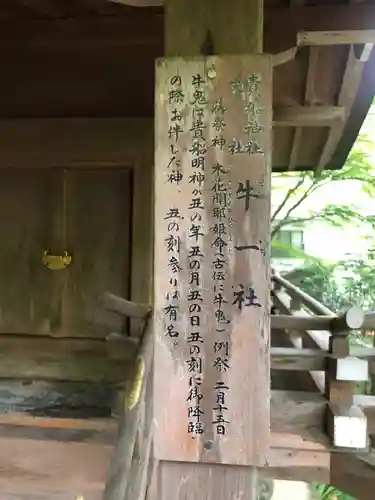 貴船神社
末社
牛一社
御祭神 木花開耶姫命(古伝に牛鬼) 例祭 二月十五日
牛鬼は貴船明神が丑の年丑の月丑の日丑の刻に御降臨
の際お伴した神、丑の刻参りは有名。